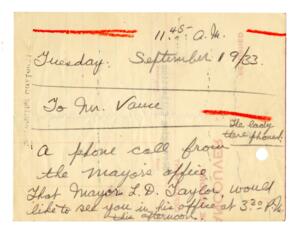 11.45 A.M.
Tuesday. September 19/33.
To Mr. Vance
The lady
here phoned.
A phone call from
the mayor's office
That Mayor L. D. Taylor would
like to see you in his office at 3.30 P.M.
this afternoon.